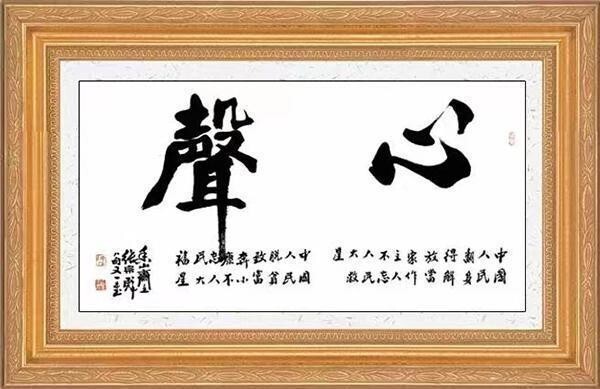 心聲
中國
人民
翻身
得解
放當
家作
主人
不忘
人民
大救
星
中國
人民
脱貧
致富
奔小
康不
忘人
民大
福星